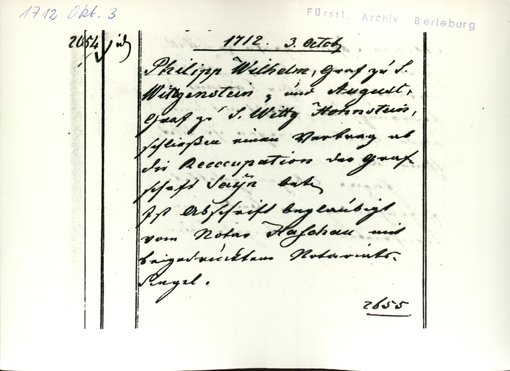 1712 Okt. 3
Fürstl. Archiv Berleburg
2654
1712. 3. Octob
Philipp Wilhelm, Graf zu S.
Wittgenstein, und August,
Graf zu S. Wittg Hohnstein,
schließen einen Vertrag ab
die Reoccupation der Graf
schaft Sayn betr
Ist Abschrift beglaubigt
vom Notar Kaschau mit
beigedrücktem Notariats-
Siegel.
2655